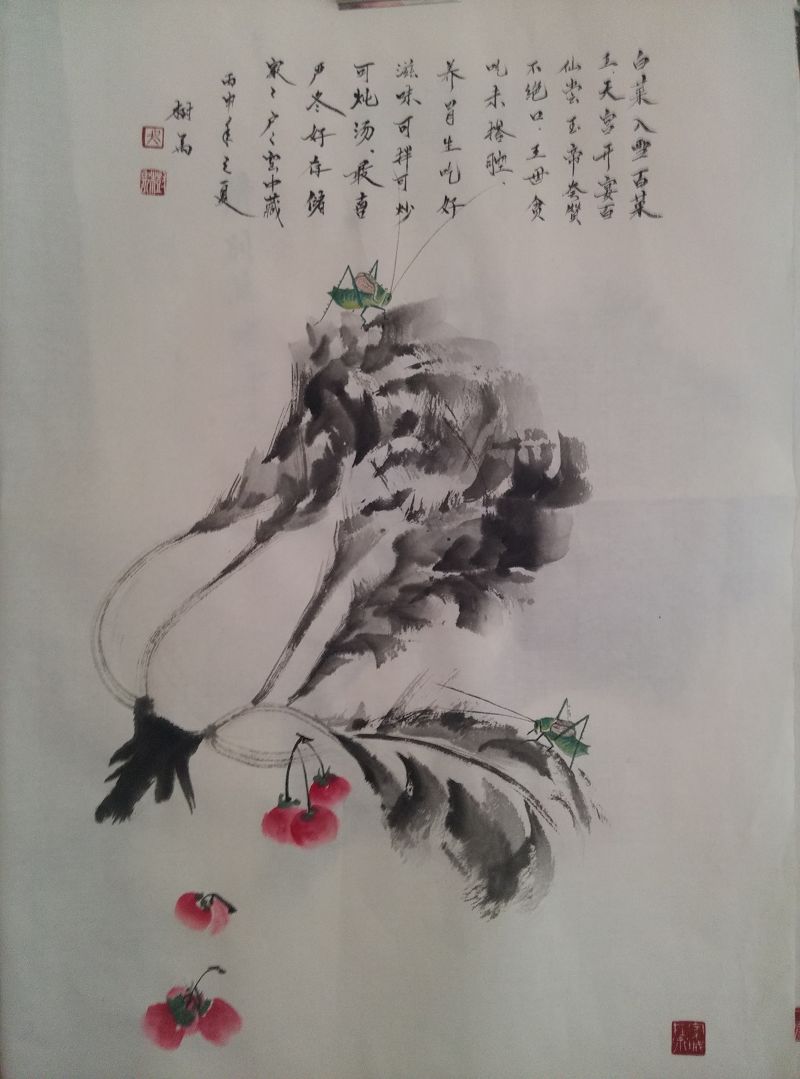 白菜入雪百菜
王天宫开宴百
仙尝玉帝夸赞
不绝口．王母贪
吃未搭腔．
养胃生吃好
滋味可拌可炒
可炖汤、最喜
严冬好存储
家々户々窖中藏
丙申年之夏
树